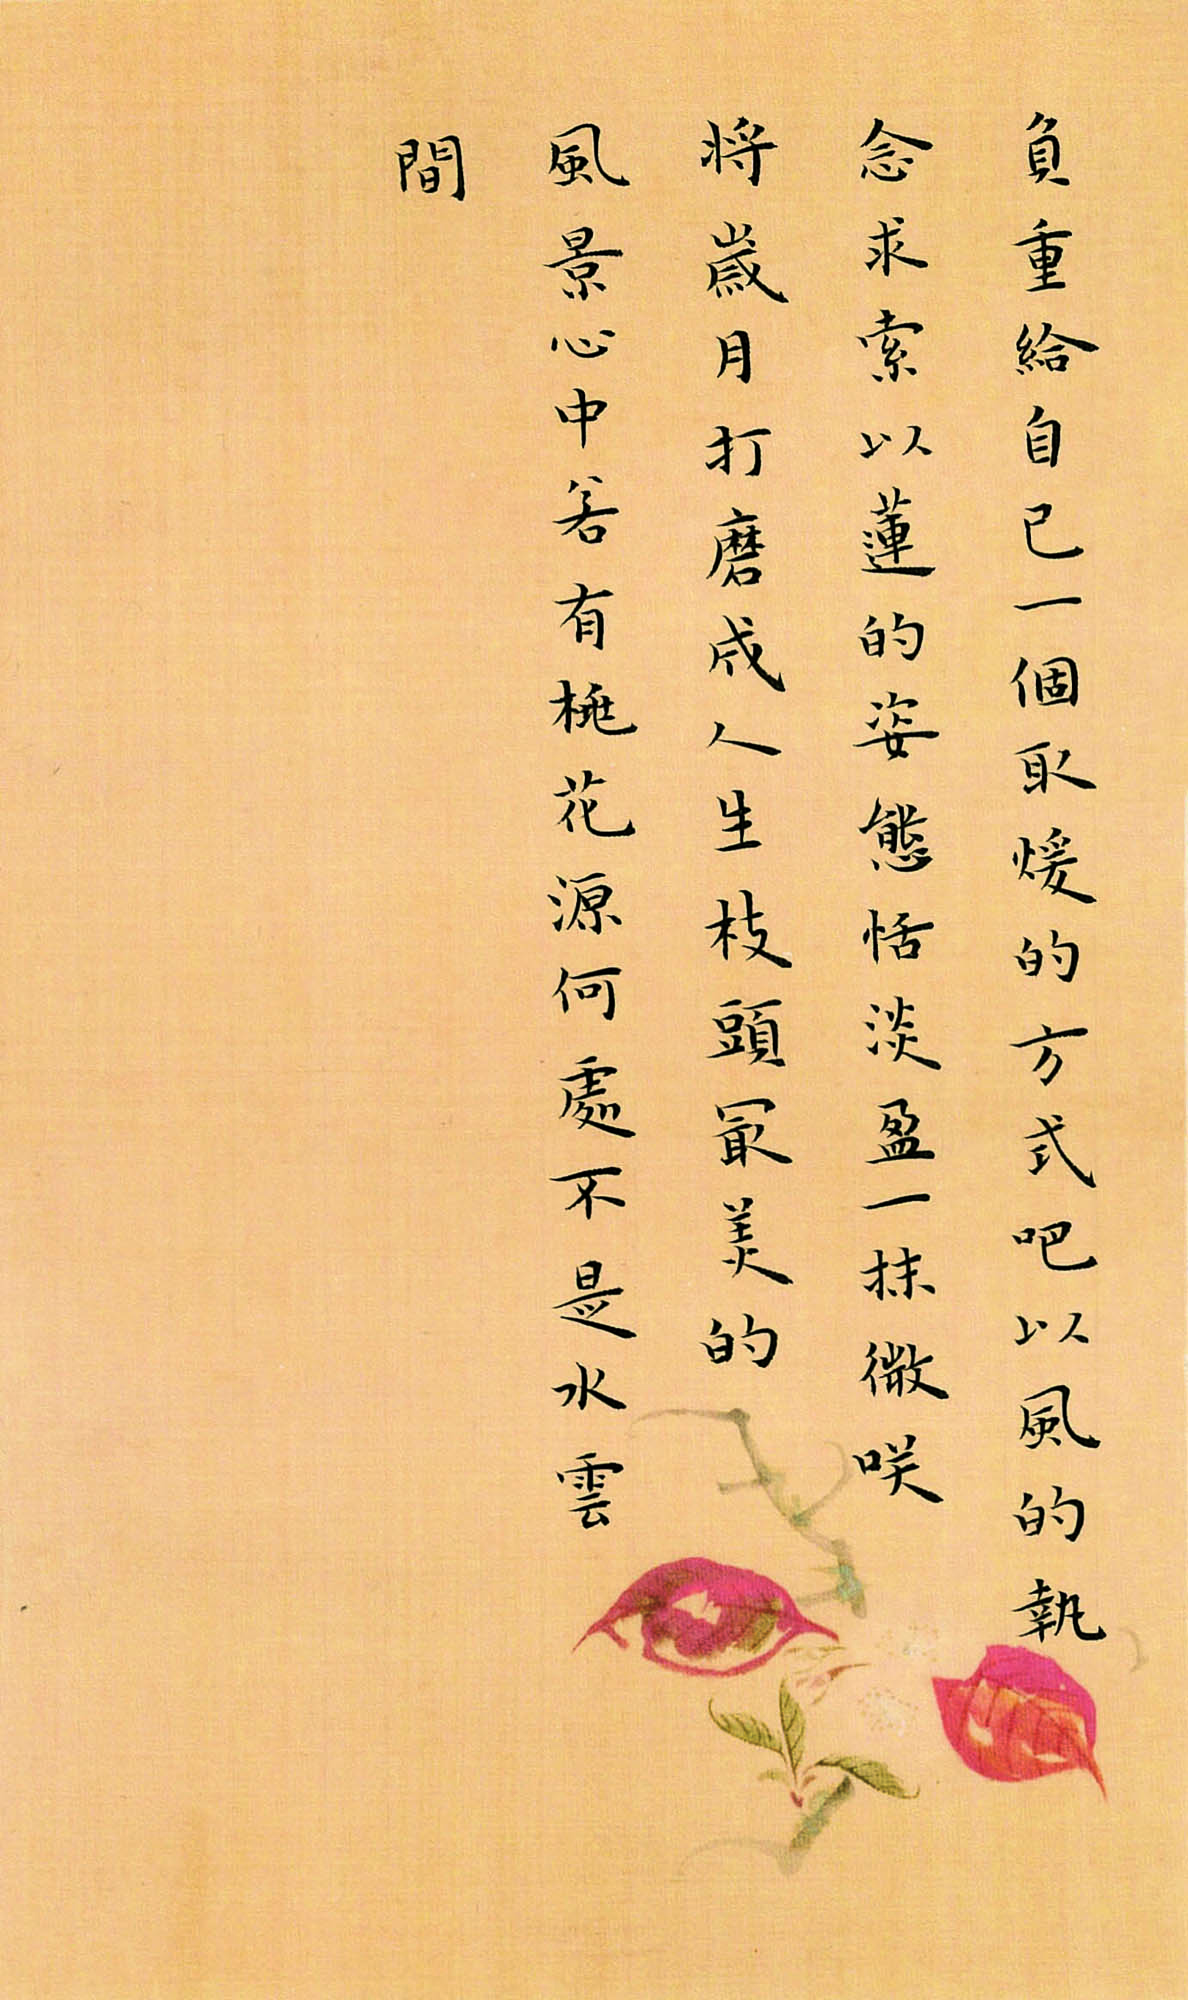 負重給自己一個取煖的方式吧以風的執
念求索以蓮的姿態恬淡盈一抹微咲
將歲月打磨成人生枝頭冣美的
風景心中若有桃花源何處不是水雲
間